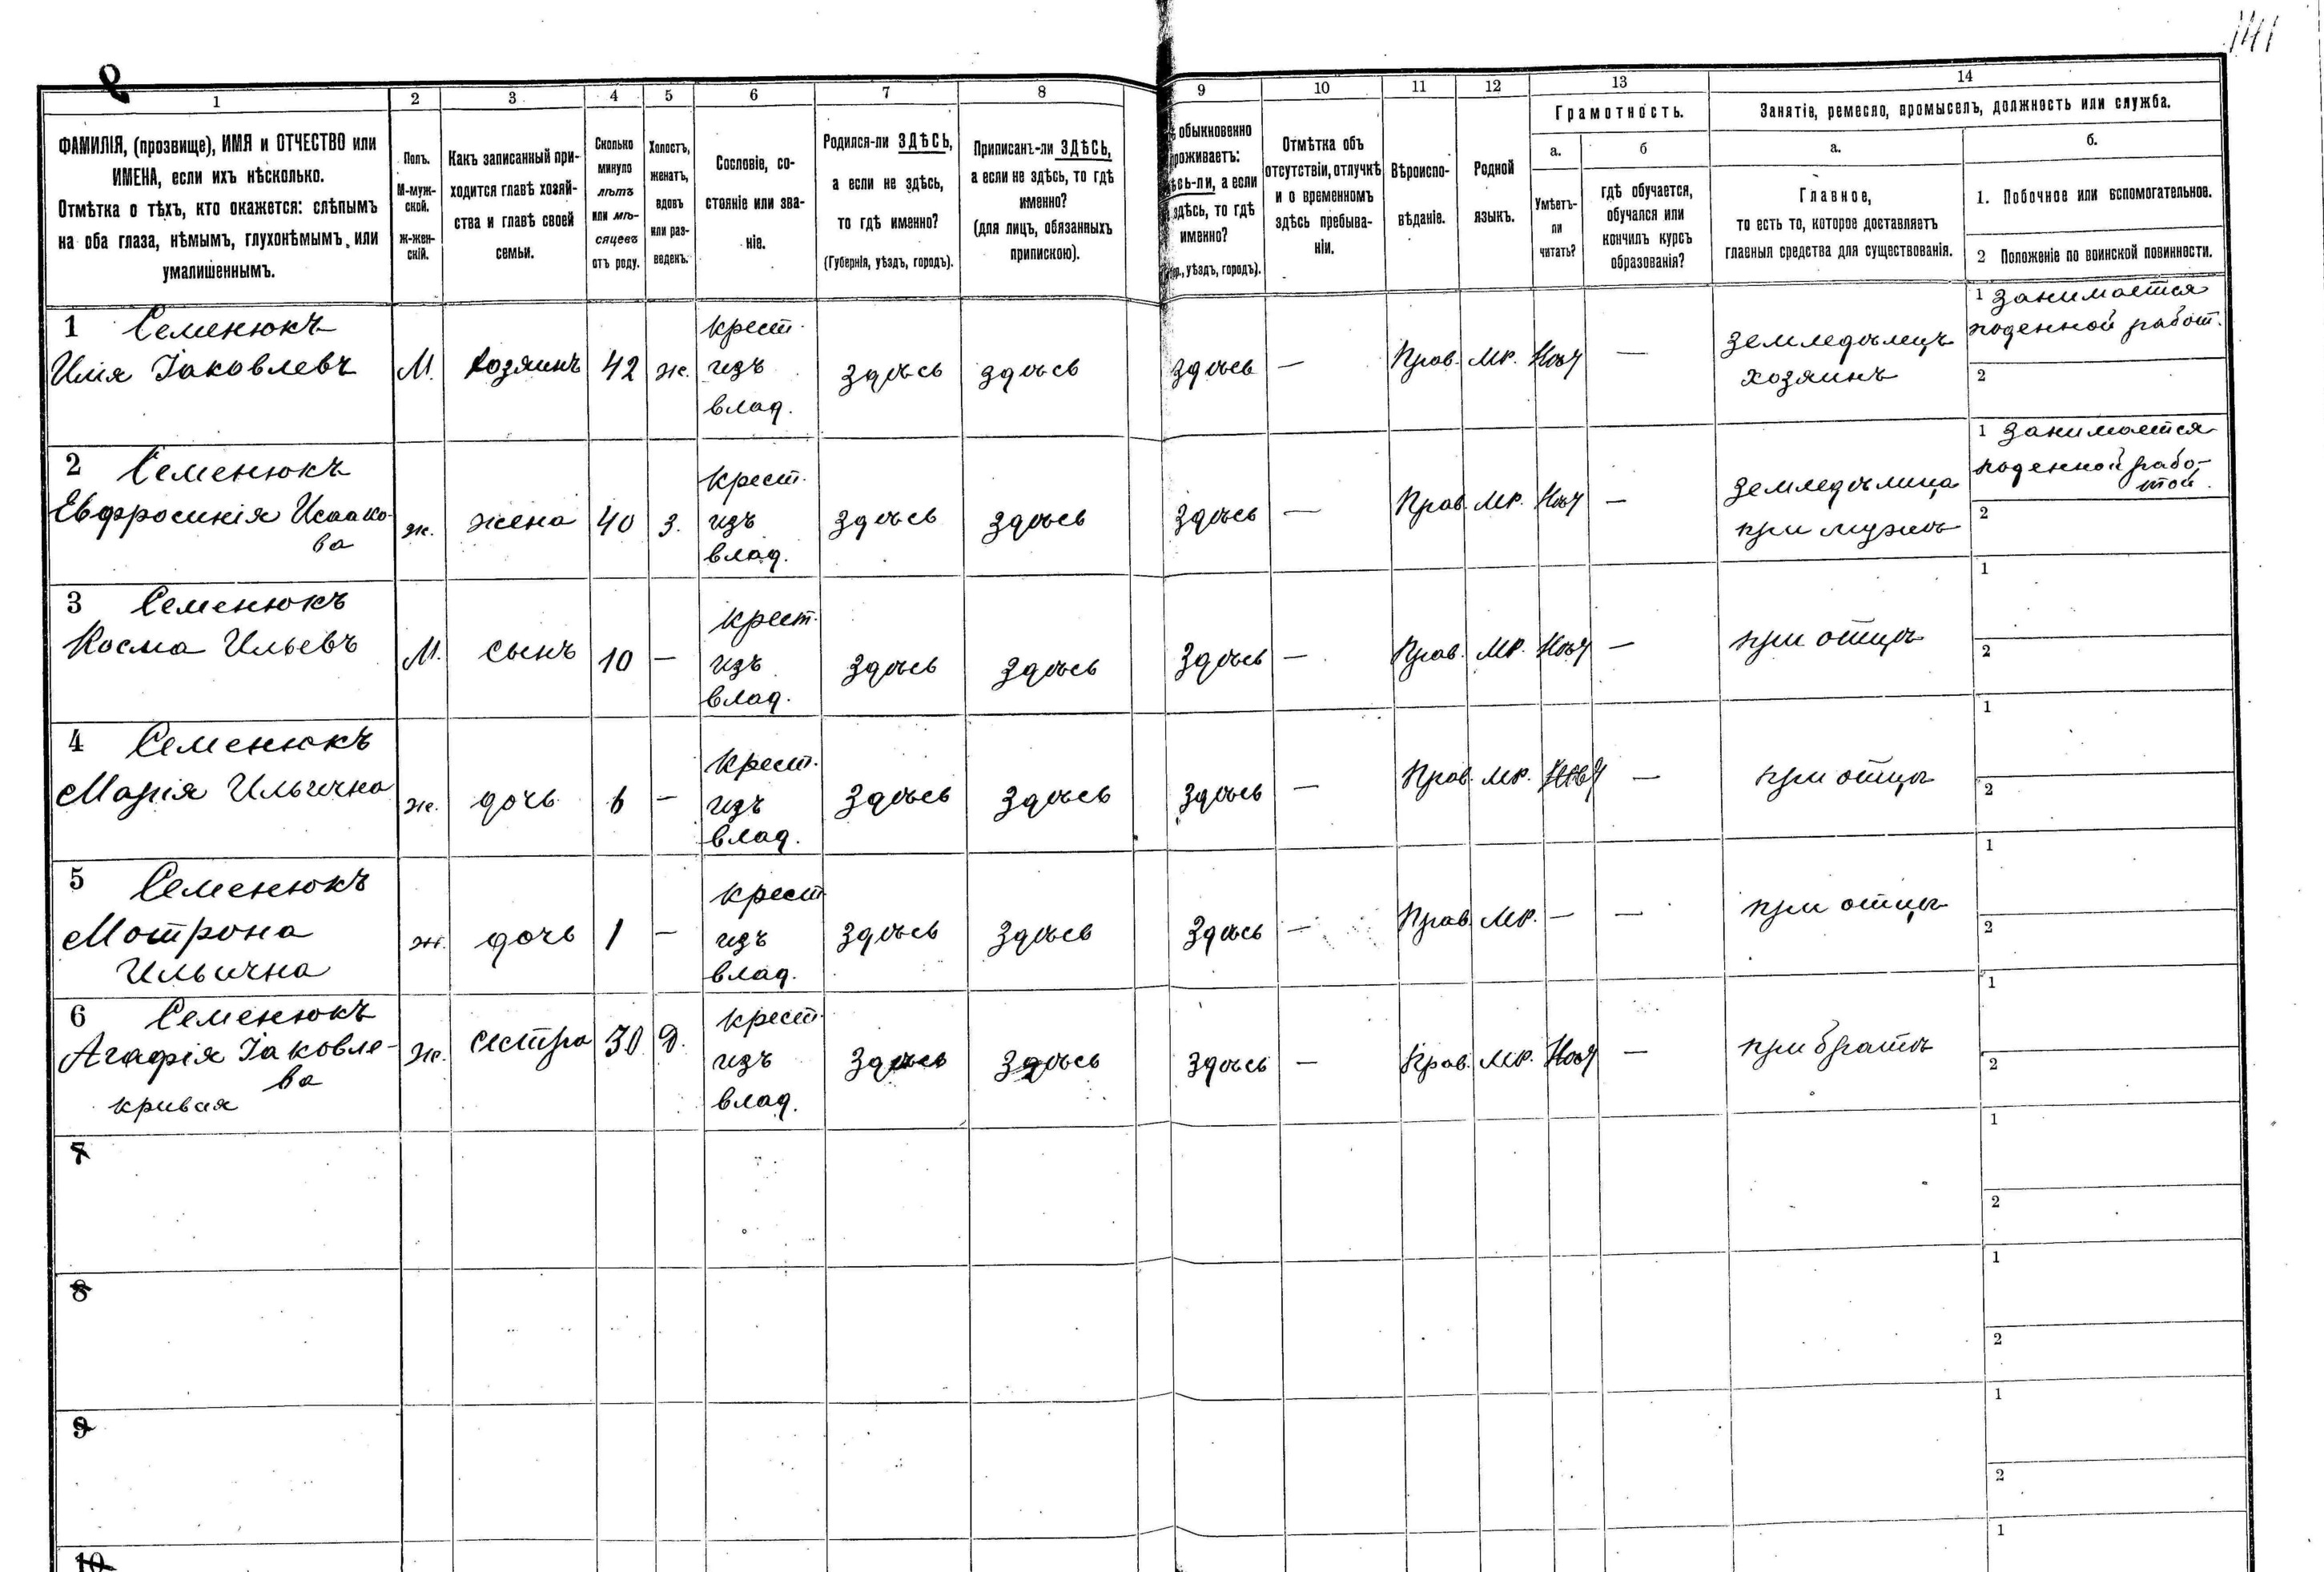 141
1 2 3 4 5 6 7 8 9 10 11 12 13 14
ФАМИЛІЯ, (прозвище), ИМЯ и ОТЧЕСТВО или
ИМЕНА, если ихъ нѣсколько.
Отмѣтка о тѣхъ, кто окажется: слѣпымъ
на оба глаза, нѣмымъ, глухонѣмымъ, или
умалишеннымъ.
Полъ.
М-муж-
ской.
Ж-жен-
скій.
Какъ записанный при-
ходится главѣ хозяй-
ства и главѣ своей
семьи.
Сколько
минуло
лѣтъ
или мѣ-
сяцевъ
отъ роду.
Холостъ,
женатъ,
вдовъ
или раз-
веденъ.
Сословіе, со-
стояніе или зва-
ніе.
Родился-ли ЗДѢСЬ,
а если не здѣсь,
то гдѣ именно?
(Губернія, уѣздъ, городъ).
Приписанъ-ли ЗДѢСЬ,
а если не здѣсь, то гдѣ
именно?
(для лицъ, обязанныхъ
припискою).
обыкновенно
роживаетъ:
сь-ли, а если
здѣсь, то гдѣ
именно?
уѣздъ, городъ).
Отмѣтка объ
отсутствіи, отлучкѣ
и о временномъ
здѣсь пребыва-
ніи.
Вѣроиспо-
вѣданіе.
Родной
языкъ.
Грамотность.
а.
Умѣетъ-
ли
читать?
б
гдѣ обучается,
обучался или
кончилъ курсъ
образованія?
Занятіе, ремесло, промыселъ, должность или служба.
а.
Главное,
то есть то, которое доставляетъ
главныя средства для существованія.
б.
1. Побочное или вспомогательное.
2 Положеніе по воинской повинности.
1 Семенюкъ
Илія Іаковлевъ
М. хозяинъ 42 ж.
крест.
изъ
влад.
здѣсь здѣсь здѣсь — Прав. Мр. Нѣт —
земледѣлецъ
хозяинъ
1 Занимается
поденной работ.
2
2 Семенюкъ
Евфросинія Исаако-
ва
ж. жена 40 З.
крест.
изъ
влад.
здѣсь здѣсь здѣсь — Прав. Мр. Нѣт —
земледѣлица
при мужѣ
1 Занимается
поденной рабо-
той.
2
3 Семенюкъ
Косма Ильевъ
М. сынъ 10 —
крест.
изъ
влад.
здѣсь здѣсь здѣсь — Прав. Мр. Нѣт —
при отцѣ
1
2
4 Семенюкъ
Марія Ильична
ж. дочь 6 —
крест.
изъ
влад.
здѣсь здѣсь здѣсь — Прав. Мр. Нѣт —
при отцѣ
1
2
5 Семенюкъ
Мотрона
Ильична
ж. дочь 1 —
крест
изъ
влад.
здѣсь здѣсь здѣсь — Прав. Мр. — —
при отцѣ
1
2
6 Семенюкъ
Агафія Іаковле-
ва
кривая
ж. сестра 30 Д.
крест.
изъ
влад.
здѣсь здѣсь здѣсь — Прав. Мр. Нѣт —
при братѣ
1
2
7
1
2
8
1
2
9
1
2
10
1